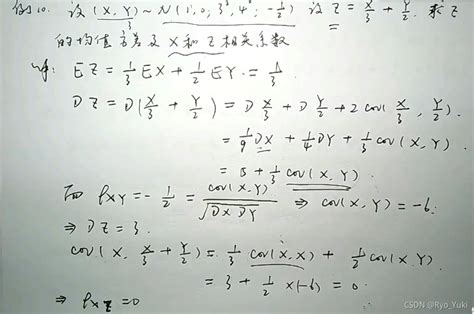 例10. 设 (X, Y) ~ N(1, 0, 3², 4², -1/2) 设 Z = X/3 + Y/2. 求 Z
的均值 方差及 X和Z相关系数
解: EZ = 1/3 EX + 1/2 EY = 1/3
DZ = D(X/3 + Y/2) = D X/3 + D Y/2 + 2 cov(X/3, Y/2).
= 1/9 DX + 1/4 DY + 1/3 cov(X, Y)
= 5 + 1/3 cov(X, Y)
而 ρXY = -1/2 = cov(X, Y)/√(DX DY) ⇒ cov(X, Y) = -6.
⇒ DZ = 3.
cov(X, X/3 + Y/2) = 1/3 cov(X, X) + 1/2 cov(X, Y)
= 3 + 1/2 ×(-6) = 0.
⇒ ρXZ = 0
CSDN @Ryo_Yuki